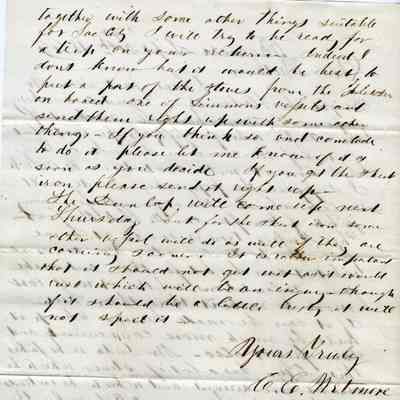 together with some other things suitable
for Sac City I will try to be ready for
a trip on your return Indeed I
dont know but it would be best to
put a part of the stoves from the
on board one of Simmons vessels and
send them right up with some other
things - If you think so and conclude
to do it please let me know of it as
soon as you decide If you get the sheet
iron please send it right up -
The Dunlap will come up next
Thursday but for the sheet iron some
other vessel will do as well if they are
coming sooner. It is rather important
that it should not get wet as it would
rust which will be an injury - though
if it should be a little rusty it will
not spoil it
Yours Truly
C. C. Wetmore